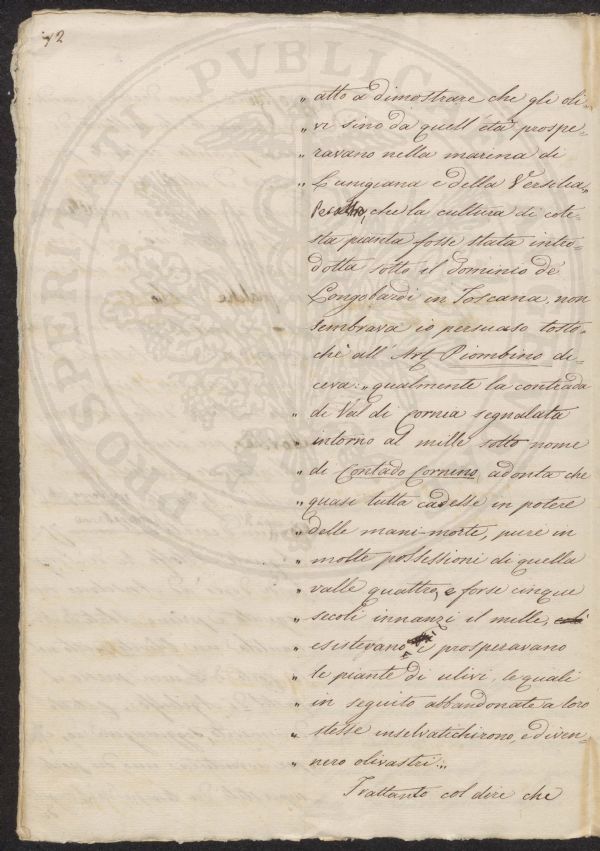 72
„ atto a dimostrare che gli oli-
„ vi sino da quell'età prospe-
„ ravano nella marina di
„ Lunigiana e della Versilia.
Peraltro, che la cultura di cote-
sta pianta fosse stata intro-
dotta sotto il dominio de'
Longobardi in Toscana, non
sembrava io persuaso totto-
chè all'Art. Piombino di-
ceva: „ qualmente la contrada
„ di Val di Cornia segnalata
„ intorno al mille sotto nome
„ di Contado Cornino, adonta che
„ quasi tutta cadesse in potere
„ delle mani-morte, pure in
„ molte possessioni di quella
„ valle quattro, e forse cinque
„ secoli innanzi il mille,
„ esistevano e prosperavano
„ le piante di ulivi, le quali
„ in seguito abbandonate a loro
„ stesse inselvatichirono, e diven-
„ nero olivastri „.
Trattanto col dire che
PROSPERITATI PUBLICAE